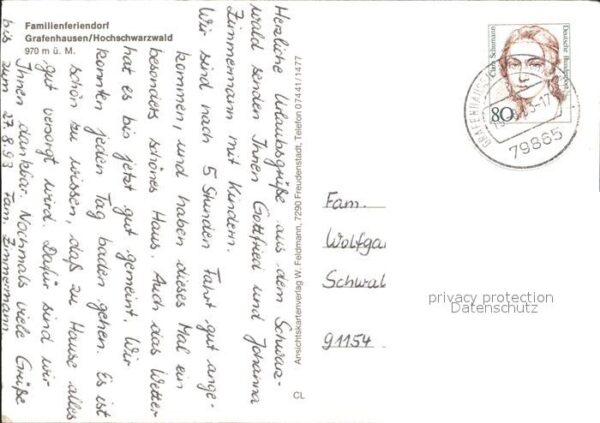 Familienferiendorf
Grafenhausen/Hochschwarzwald
970 m ü. M.
Herzliche Urlaubsgrüße aus dem Schwarz-
wald senden Ihnen Gottfried und Johanna
Zimmermann mit Kindern.
Wir sind nach 5 Stunden Fahrt gut ange-
kommen, und haben dieses Mal ein
besonders schönes Haus. Auch das Wetter
hat es bis jetzt gut gemeint. Wir
konnten jeden Tag baden gehen. Es ist
schön zu wissen, daß zu Hause alles
gut versorgt wird. Dafür sind wir
Ihnen dankbar. Nochmals viele Grüße
bis zum 27.8.93 Fam. Zimmermann
Ansichtskartenverlag W. Feldmann, 7290 Freudenstadt, Telefon 07441/1477
CL
Clara Schumann
Deutsche Bundespost
80
GRAFENHAUSEN
79865
Fam.
Wolfga
Schwal
91154
privacy protection
Datenschutz